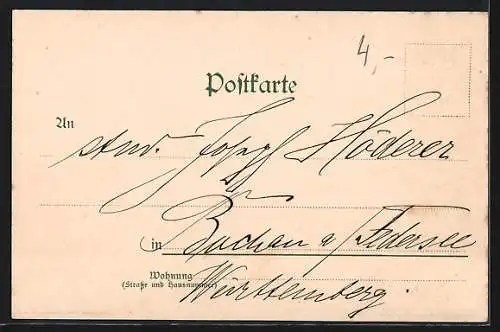 4,-
Postkarte
An
stud. Josef Höderer
in Buchau a/Federsee
Wohnung
(Straße und Hausnummer)
Württemberg.